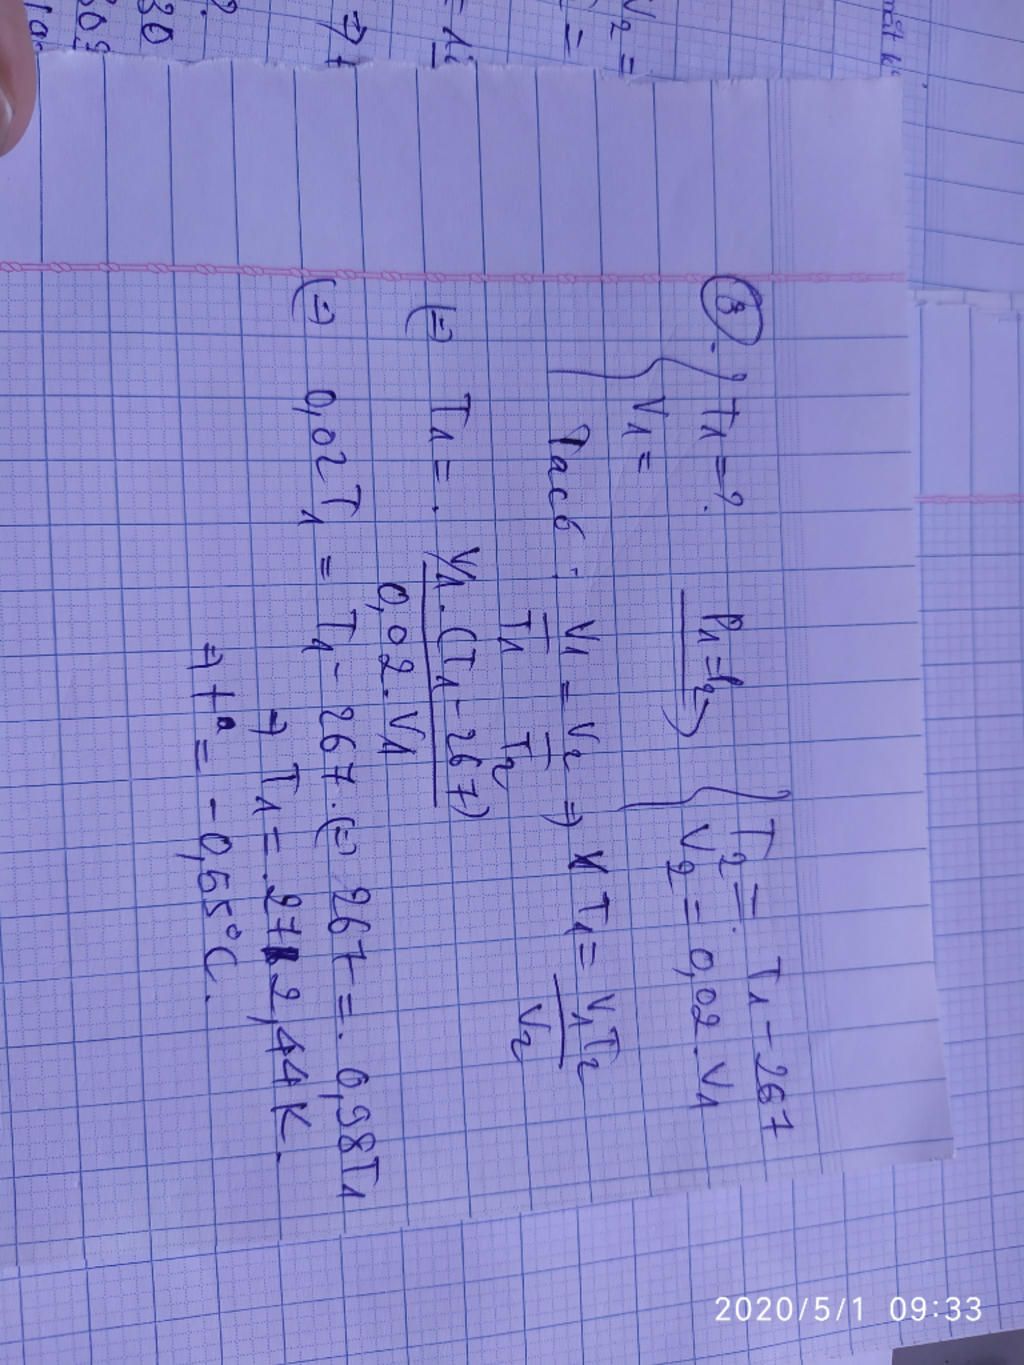 3. T1 = ? P1 = P2 T2 = T1 - 267
V1 = V2 = 0,02 . V1
Ta có : V1/T1 = V2/T2 => T1 = V1T2/V2
(=) T1 = V1.(T1 - 267)/0,02.V1
(=) 0,02T1 = T1 - 267. (=) 267 = 0,98T1
=> T1 = 272,44K.
=> t° = -0,55°C.
2020/5/1 09:33